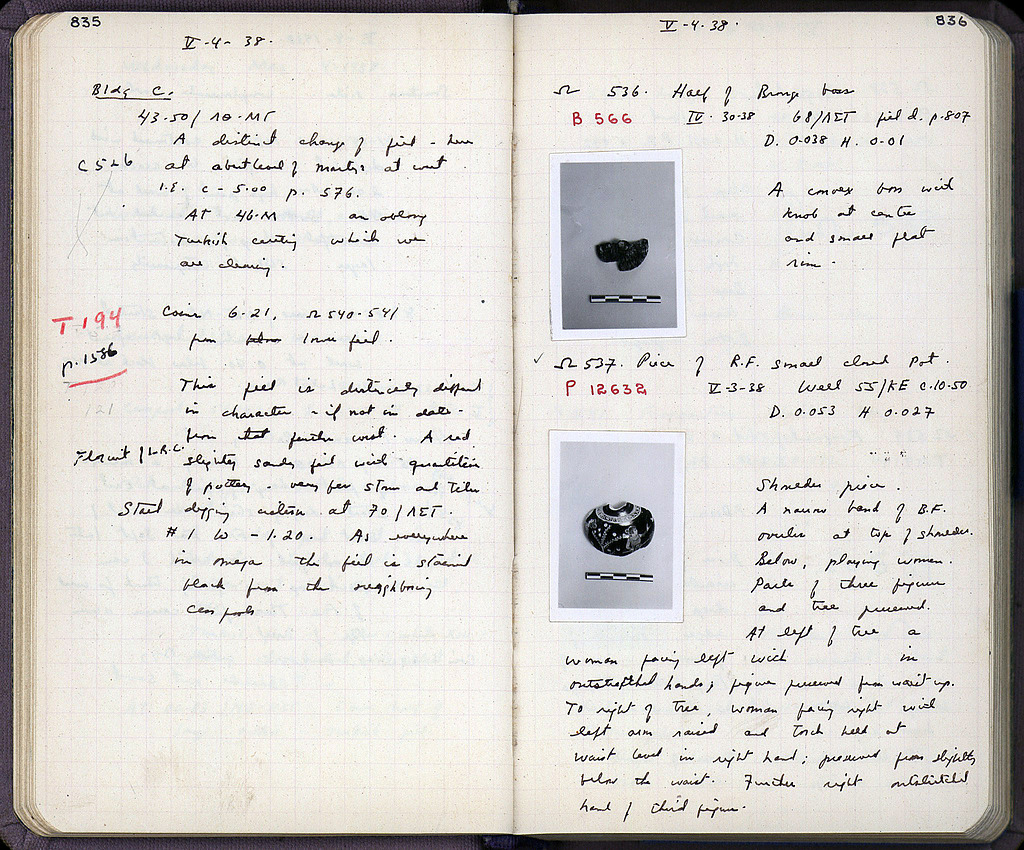 835
V-4-38.
Bldg C.
43-50/ΛΘ-ΜΓ
A distinct change of fill - here
C 526
at about level of at west
I.E. c -5.00 p. 576.
At 46-M an oblong
Turkish cutting which we
are cleaning.
T.194
p. 1586
Coins 6-21, Ω 540-541
from lower fill.
This fill is distinctly different
in character - if not in date -
121
from that further west. A red
L.R.C.
slightly sandy fill with quantities
of pottery - very few stones and tiles
Start digging cistern at 70/ΛΣΤ.
#1 to -1.20. As everywhere
in omega the fill is stained
black from the neighboring
cess pools
836
V-4-38.
Ω 536. Half of Bronze boss
B 566
IV-30-38 68/ΛΣΤ field d. p. 807
D. 0.038 H. 0.01
A convex boss with
knob at centre
and small flat
rim.
✓ Ω 537. Piece of R.F. small closed pot.
P 12632
V-3-38 Well 55/ΚΕ c. 10.50
D. 0.053 H 0.027
Shoulder piece.
A narrow band of B.F.
ovules at top of shoulder.
Below, playing women.
Parts of three figures
and tree preserved.
At left of tree a
woman facing left with in
outstretched hands; figure preserved from waist up.
To right of tree, woman facing right with
left arm raised and torch held at
waist level in right hand; preserved from slightly
below the waist. Further right outstretched
hand of third figure.